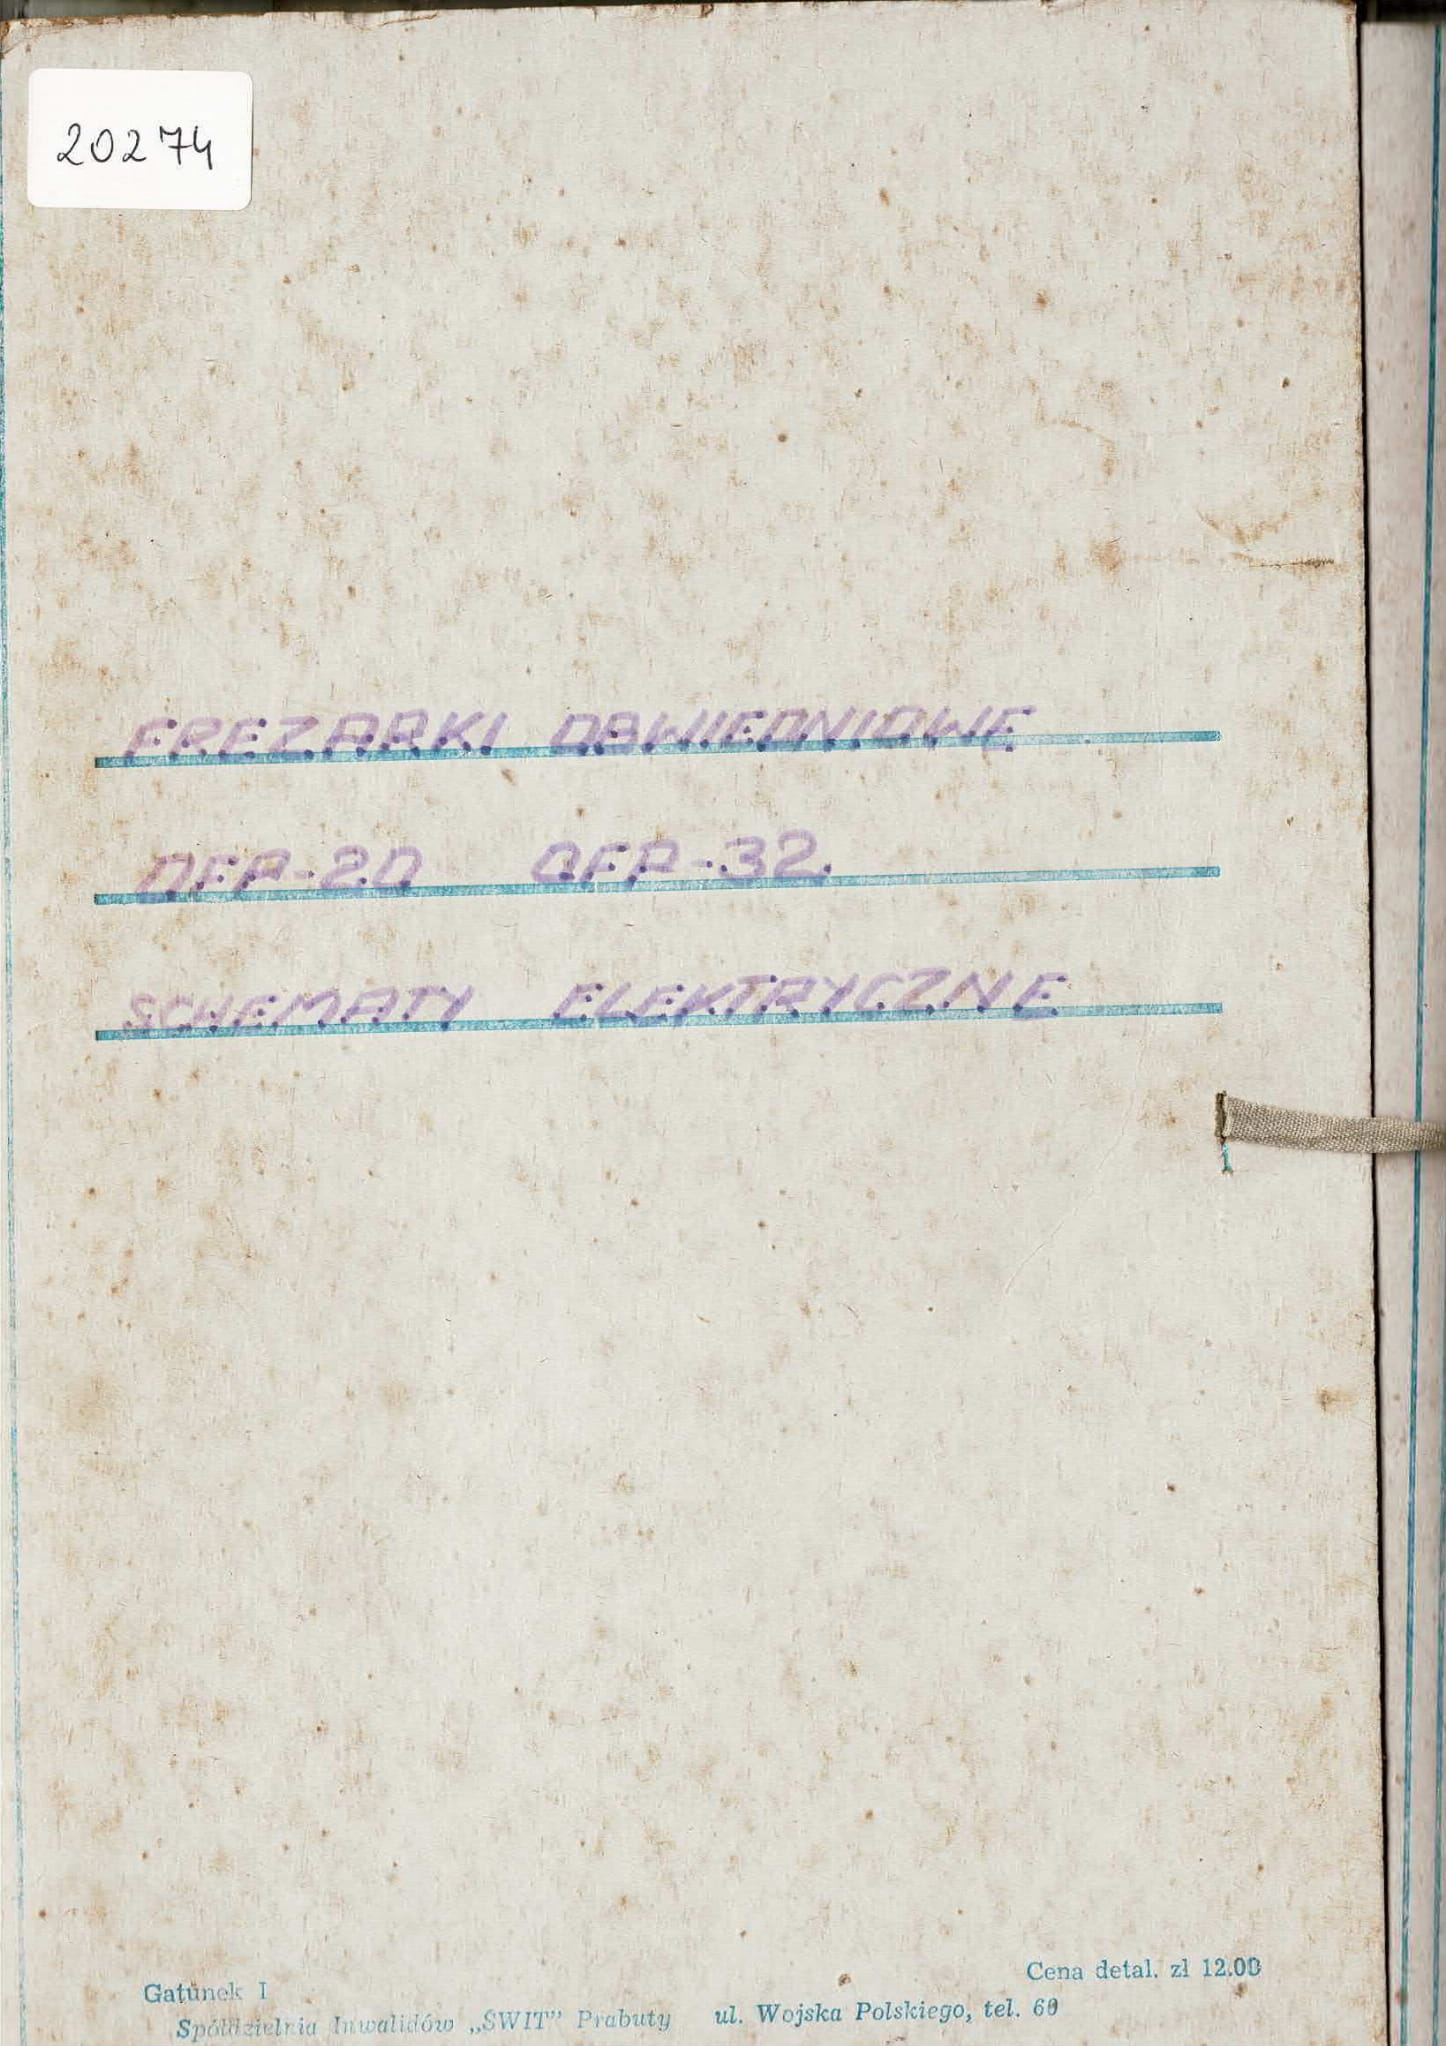 20274
FREZARKI OBWIEDNIOWE
OFA-20 OFA-32.
SCHEMATY ELEKTRYCZNE
Cena detal. zl 12.00
Gatunek I
Spółdzielnia Inwalidów „ŚWIT” Prabuty ul. Wojska Polskiego, tel. 60